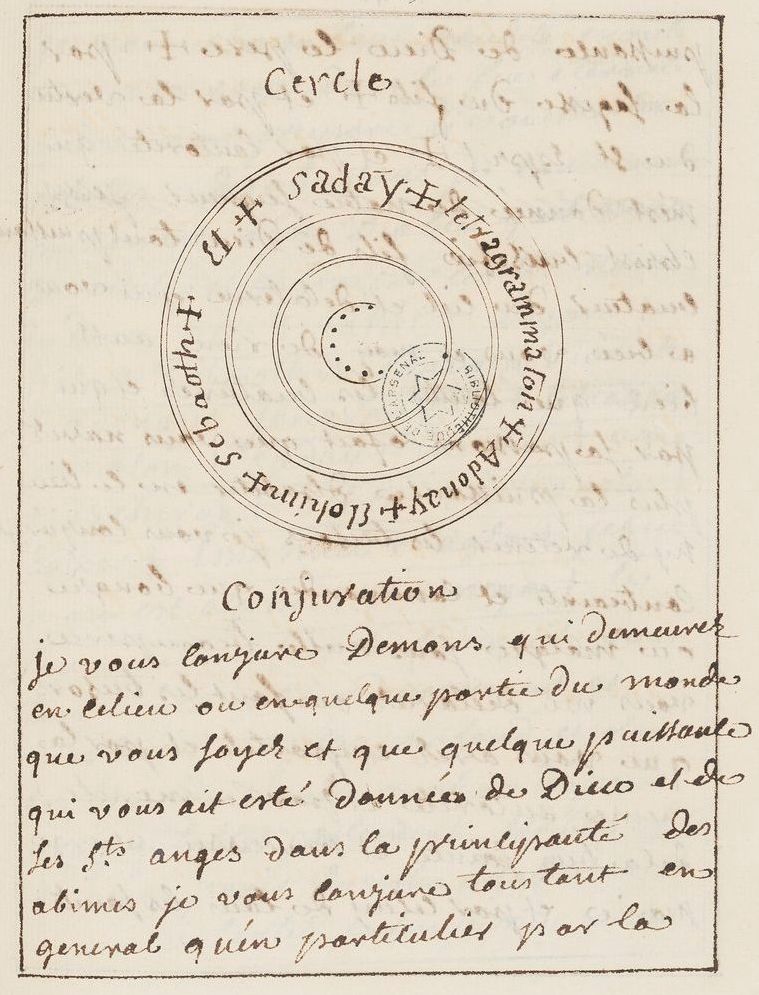 Cercle
El + Saday + tetragrammaton + Adonay + Elohim + Sebaoth +
BIBLIOTHEQUE DE L'ARSENAL
Conjuration
je vous Conjure Demons qui demeurez
en celieu ou en quelque partie du monde
que vous soyez et que quelque puissance
qui vous ait esté donnée de Dieu et de
ses Sts anges dans la principauté des
abimes je vous Conjure tous tant en
general qu'en particulier par la